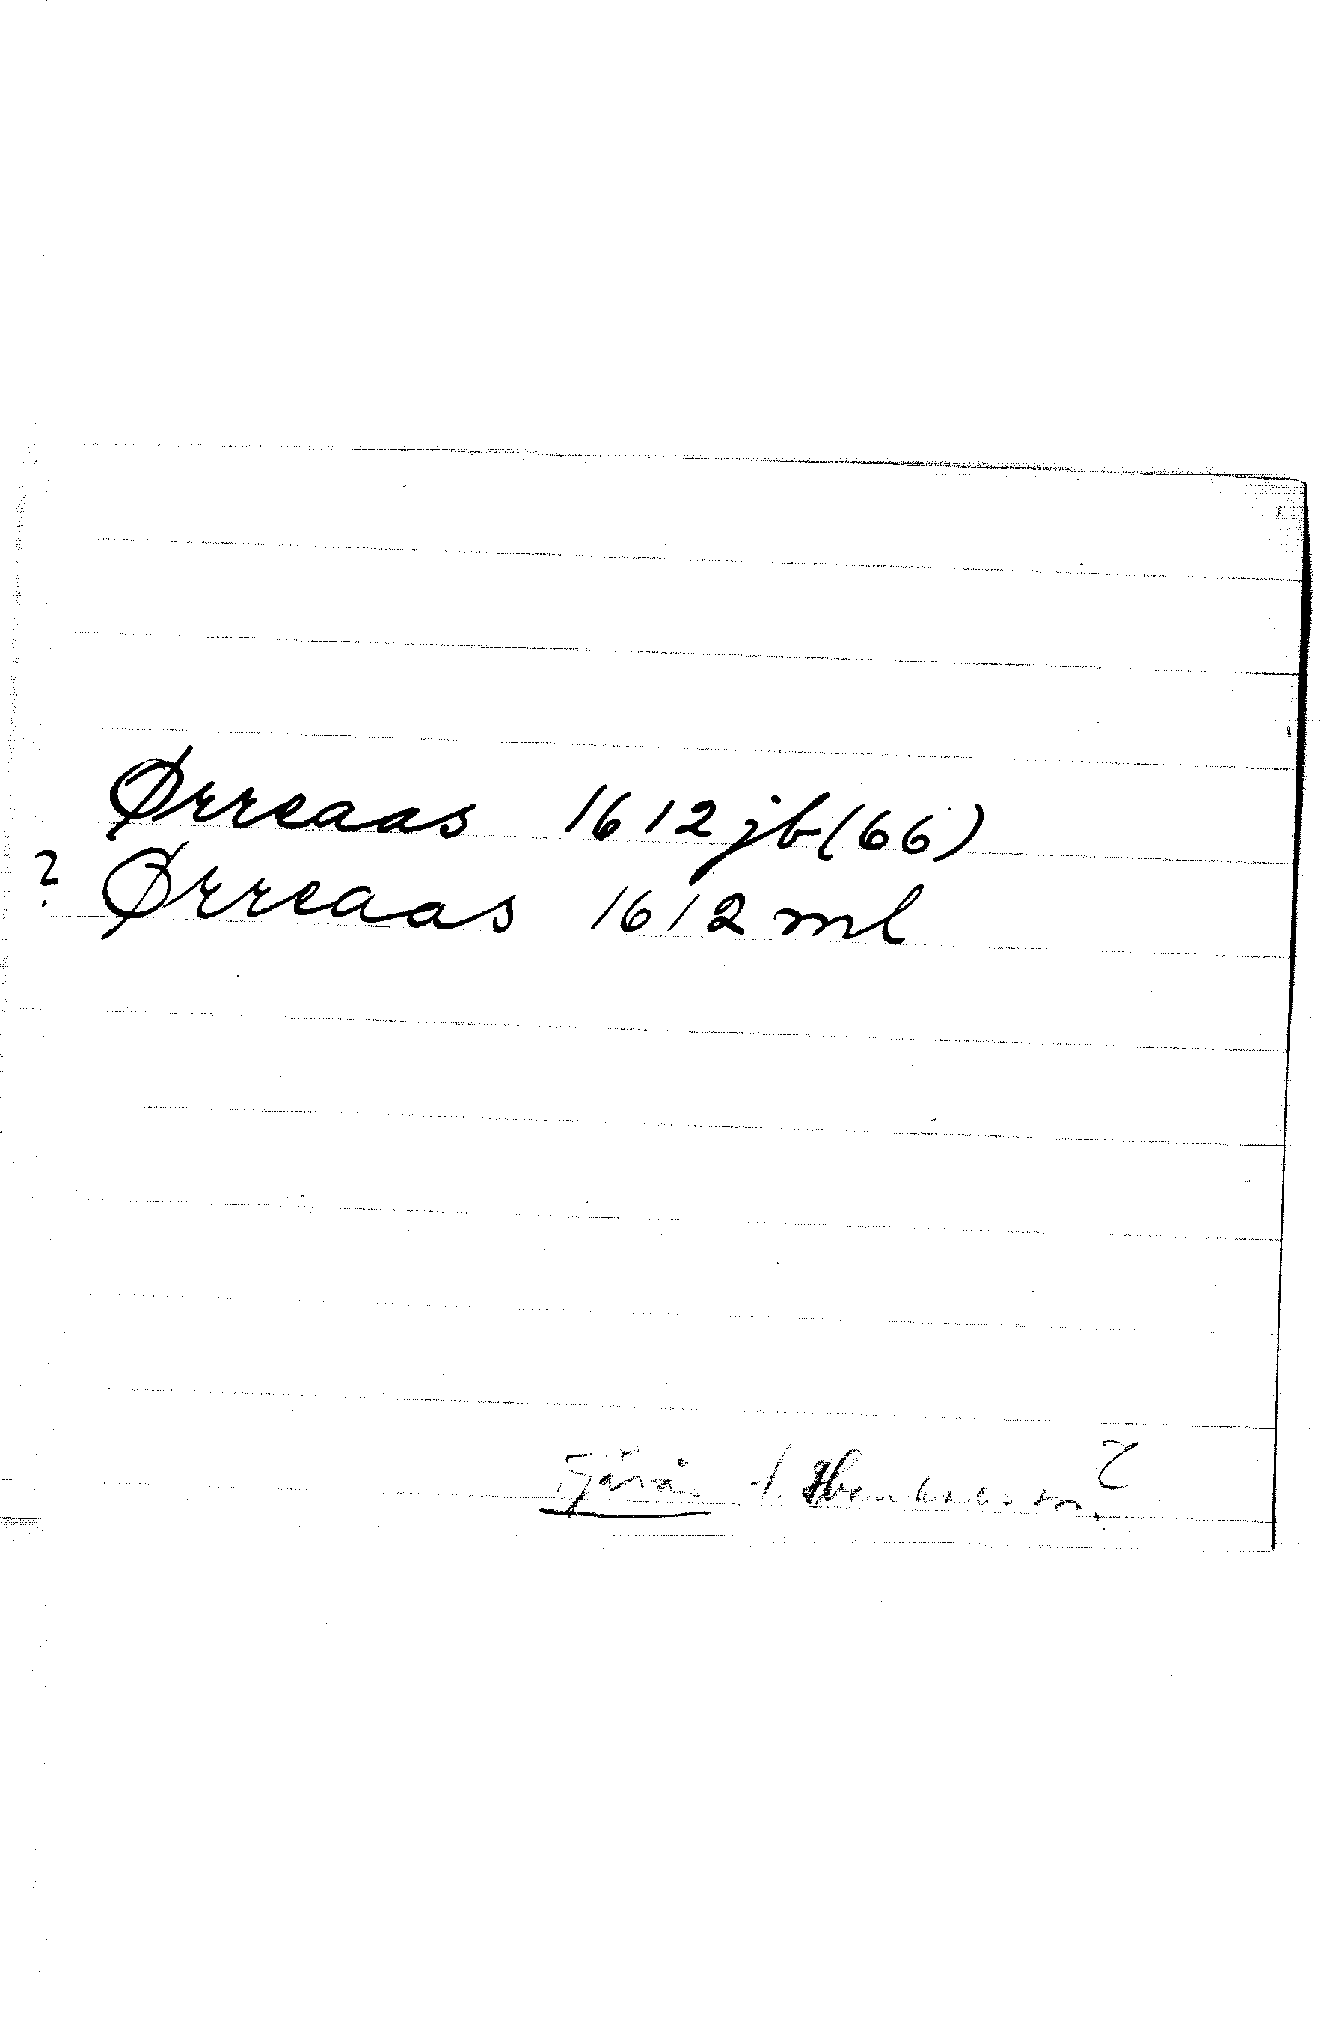 Ørreaas 1612 jb (66)
? Ørreaas 1612 ml
Fjärås ?